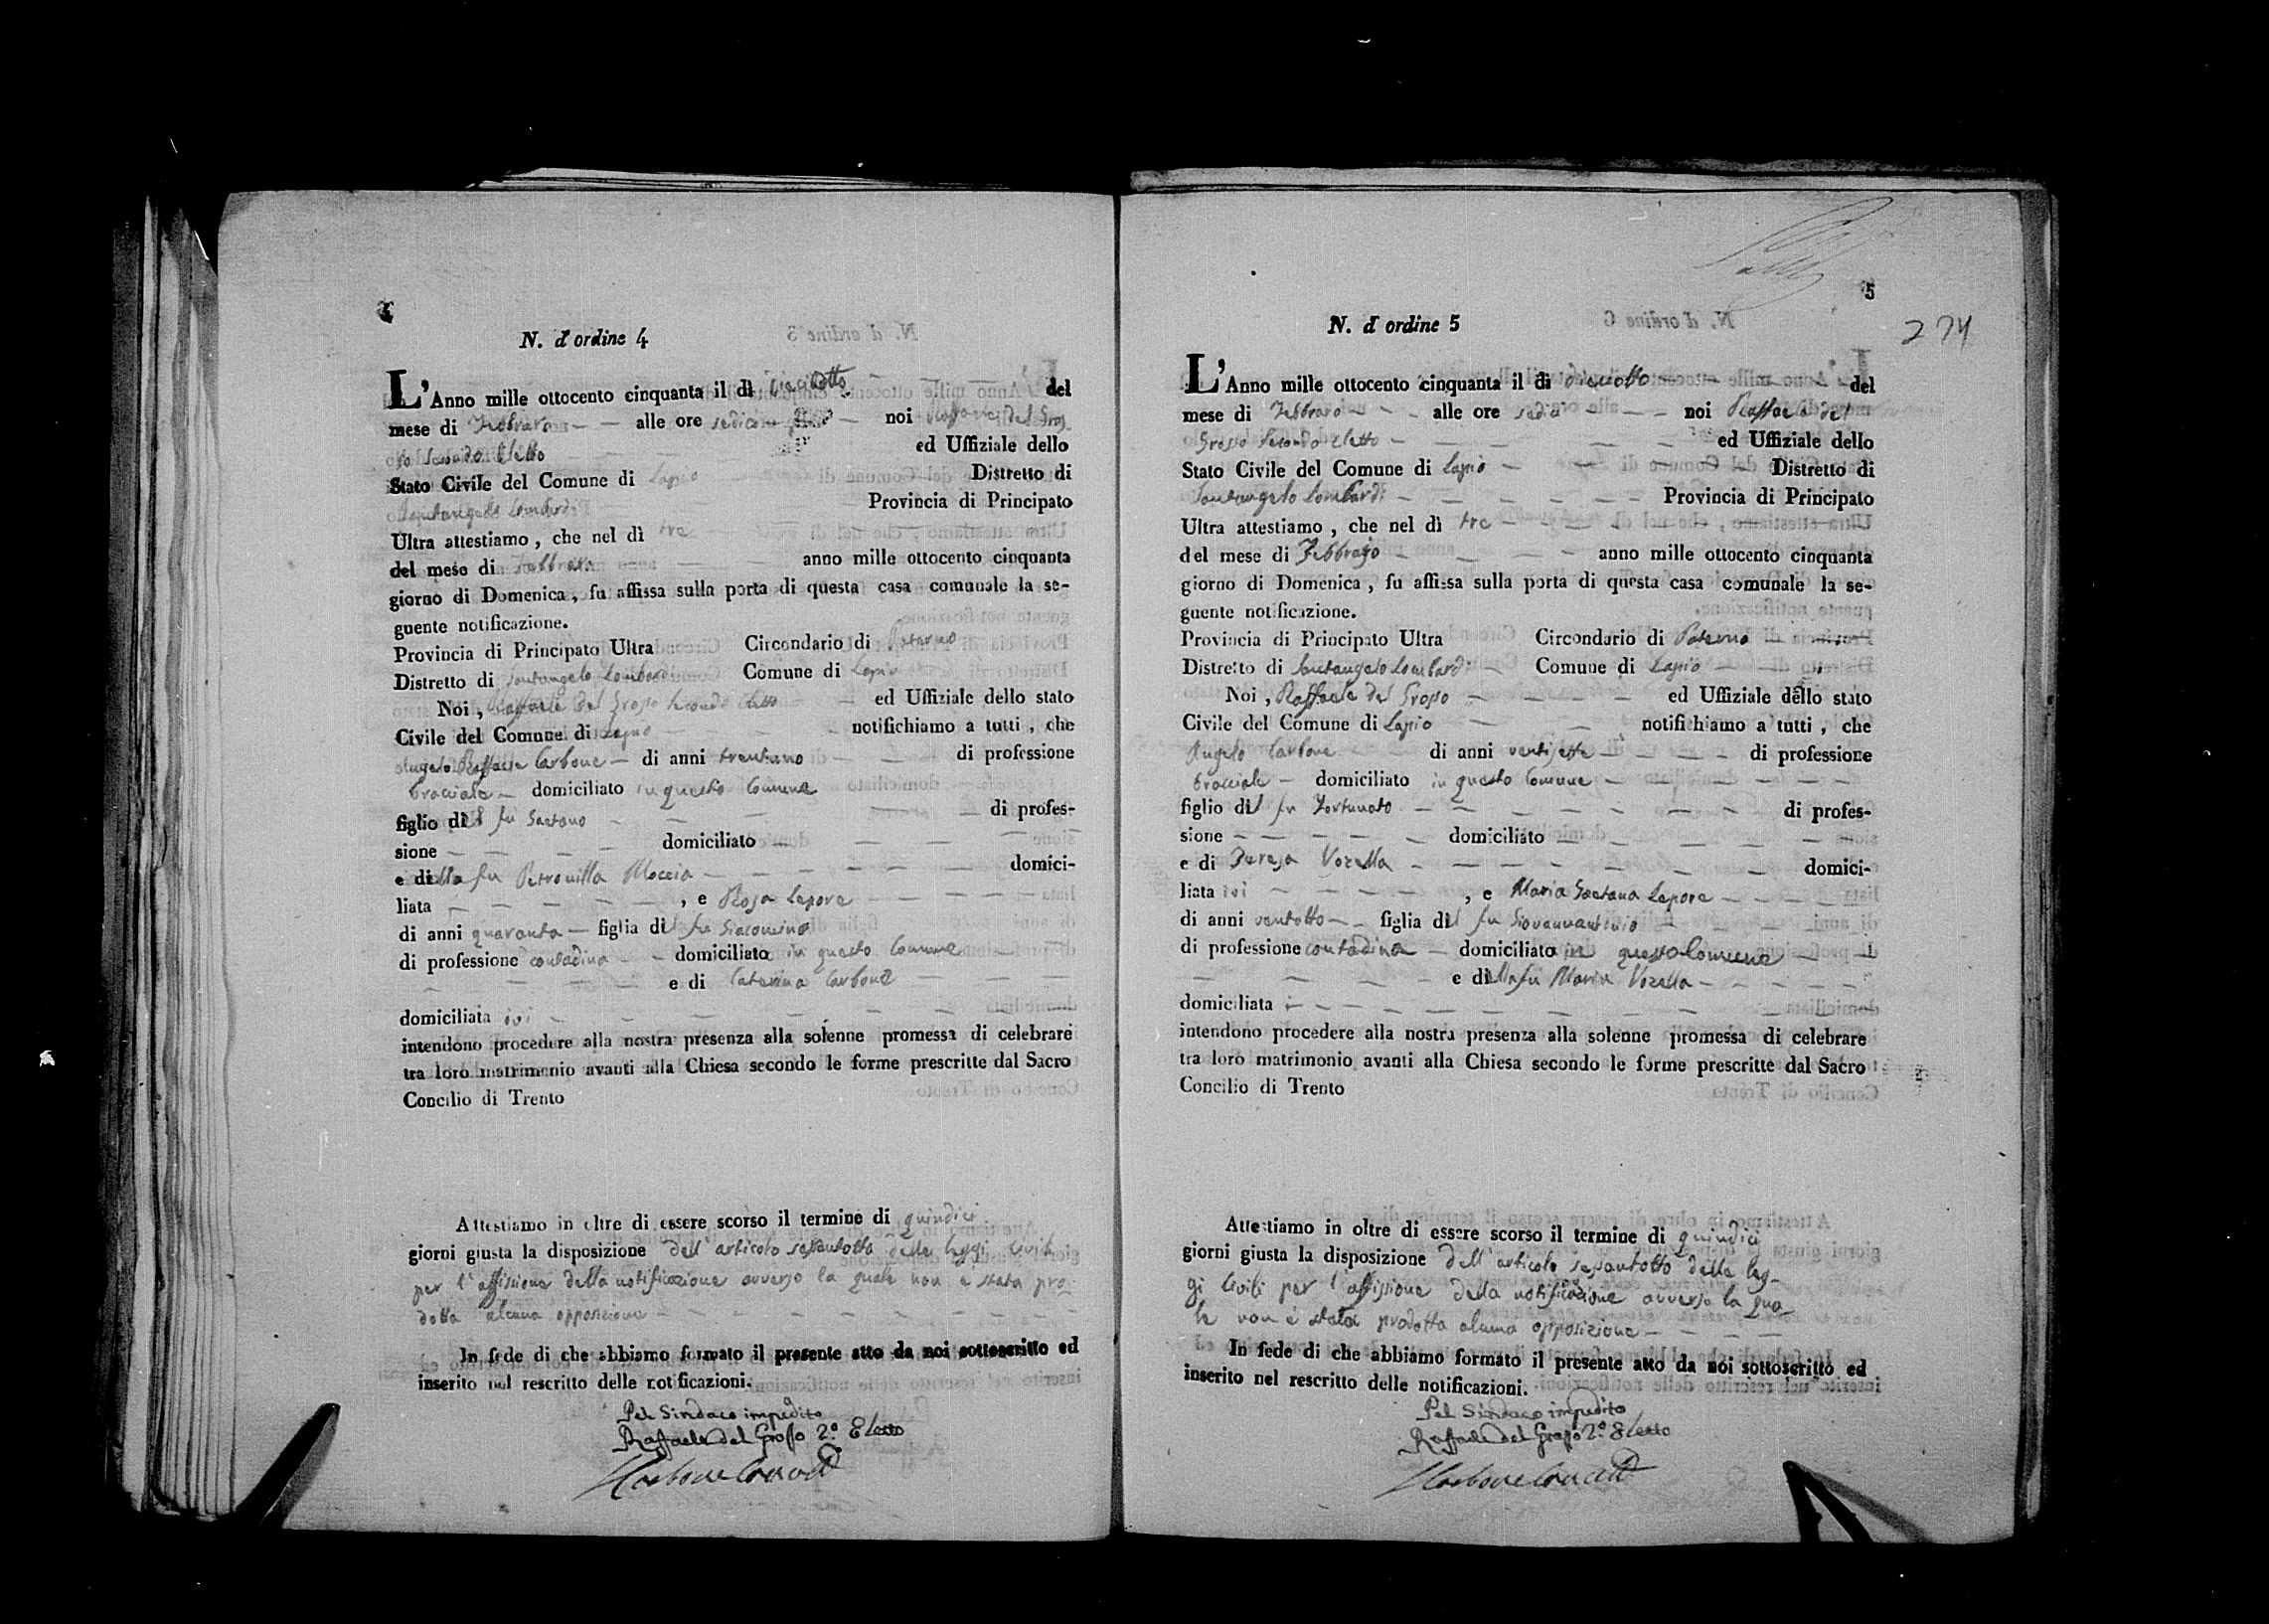 4
N. d'ordine 4
L'Anno mille ottocento cinquanta il dì diciotto del
mese di Febbraro alle ore sedici noi Raffaele del Gros
so Secondo Eletto ed Uffiziale dello
Stato Civile del Comune di Lapio Distretto di
Santangelo Lombardi Provincia di Principato
Ultra attestiamo , che nel dì tre
del mese di Febbraro anno mille ottocento cinquanta
giorno di Domenica , fu affissa sulla porta di questa casa comunale la se-
guente notificazione.
Provincia di Principato Ultra Circondario di Paterno
Distretto di Santangelo Lombardi Comune di Lapio
Noi , Raffaele del Grosso Secondo Eletto ed Uffiziale dello stato
Civile del Comune di Lapio notifichiamo a tutti , che
Angelo Raffaele Carbone di anni trentuno di professione
bracciale domiciliato in questo Comune
figlio del fu Gaetano di profes-
sione domiciliato
e della fu Petronilla Moccia domici-
liata , e Rosa Lepore
di anni quaranta figlia del fu Giacomino
di professione contadina domiciliata in questo Comune
e di Caterina Carbone
domiciliata ivi
intendono procedere alla nostra presenza alla solenne promessa di celebrare
tra loro matrimonio avanti alla Chiesa secondo le forme prescritte dal Sacro
Concilio di Trento
Attestiamo in oltre di essere scorso il termine di quindici
giorni giusta la disposizione dell'articolo sessantotto delle leggi civili
per l'affissione della notificazione avverso la quale non è stata pro
dotta alcuna opposizione
In fede di che abbiamo formato il presente atto da noi sottoscritto ed
inserito nel rescritto delle notificazioni.
Pel Sindaco impedito
Raffaele del Grosso 2.º Eletto
Carbone
5
274
N. d'ordine 5
L'Anno mille ottocento cinquanta il dì diciotto del
mese di Febbraro alle ore sedici noi Raffaele del
Grosso Secondo Eletto ed Uffiziale dello
Stato Civile del Comune di Lapio Distretto di
Santangelo Lombardi Provincia di Principato
Ultra attestiamo , che nel dì tre
del mese di Febbrajo anno mille ottocento cinquanta
giorno di Domenica , fu affissa sulla porta di questa casa comunale la se-
guente notificazione.
Provincia di Principato Ultra Circondario di Paterno
Distretto di Santangelo Lombardi Comune di Lapio
Noi , Raffaele del Grosso ed Uffiziale dello stato
Civile del Comune di Lapio notifichiamo a tutti , che
Angelo Carbone di anni ventisette di professione
bracciale domiciliato in questo Comune
figlio del fu Fortunato di profes-
sione domiciliato
e di Teresa Vozella domici-
liata ivi , e Maria Gaetana Lepore
di anni ventotto figlia del fu Giovannantonio
di professione contadina domiciliata in questo Comune
e della fu Maria Vozella
domiciliata
intendono procedere alla nostra presenza alla solenne promessa di celebrare
tra loro matrimonio avanti alla Chiesa secondo le forme prescritte dal Sacro
Concilio di Trento
Attestiamo in oltre di essere scorso il termine di quindici
giorni giusta la disposizione dell'articolo sessantotto delle leg-
gi Civili per l'affissione della notificazione avverso la qua
le non è stata prodotta alcuna opposizione
In fede di che abbiamo formato il presente atto da noi sottoscritto ed
inserito nel rescritto delle notificazioni.
Pel Sindaco impedito
Raffaele del Grosso 2.º Eletto
Carbone